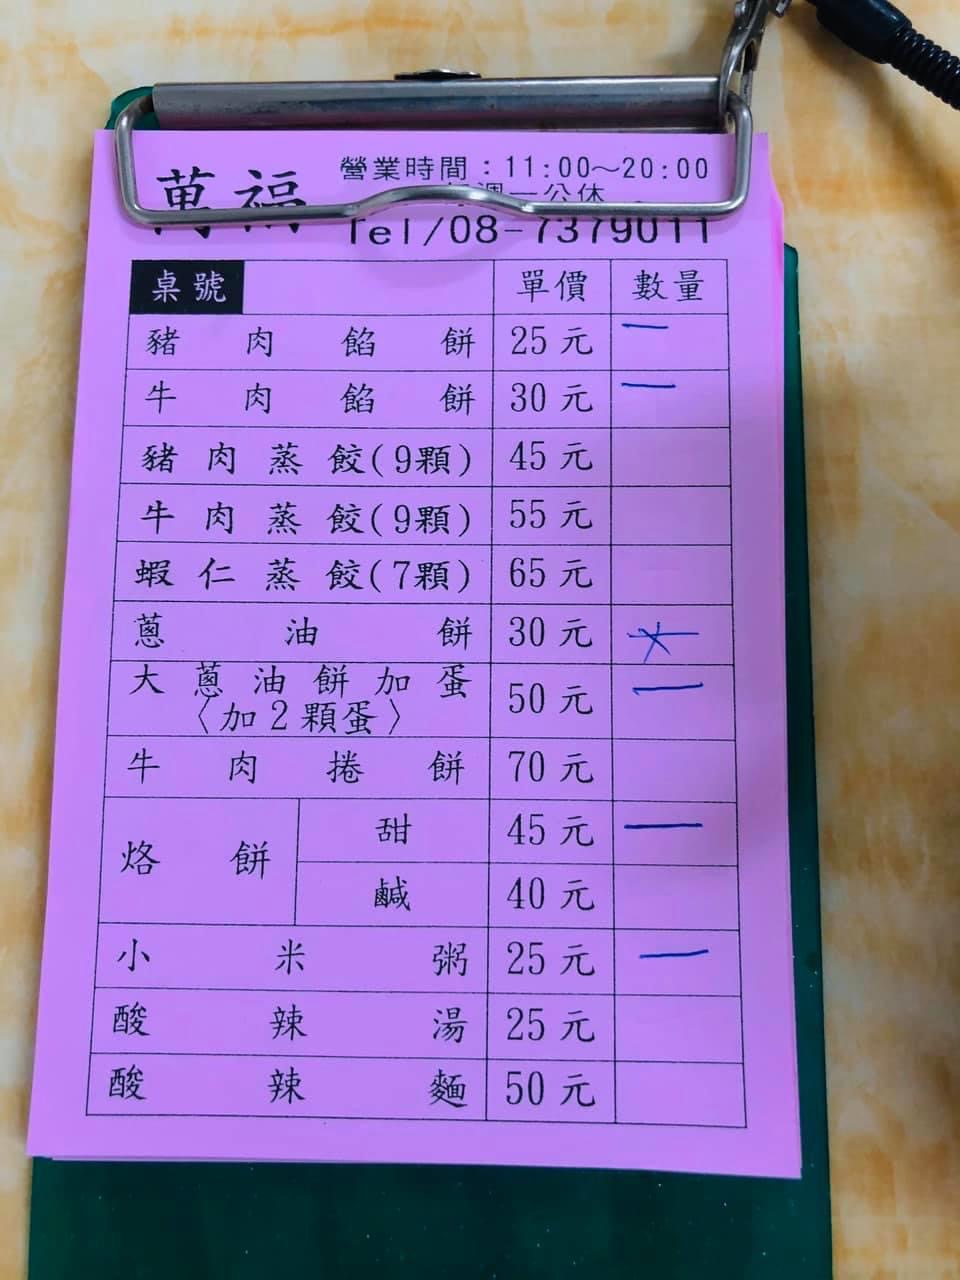 萬福
營業時間：11:00～20:00
週一公休
Tel/08-7379011
桌號 單價 數量
豬肉餡餅 25元 一
牛肉餡餅 30元 一
豬肉蒸餃(9顆) 45元
牛肉蒸餃(9顆) 55元
蝦仁蒸餃(7顆) 65元
蔥油餅 30元
大蔥油餅加蛋 50元 一
〈加2顆蛋〉
牛肉捲餅 70元
烙餅 甜 45元 一
鹹 40元
小米粥 25元 一
酸辣湯 25元
酸辣麵 50元